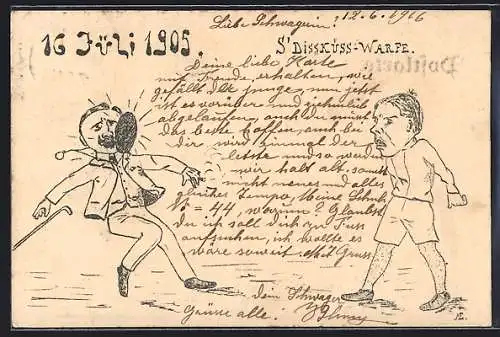 Liebe Schwägerin! 12.6.1916
16 Jüli 1905.
S' DISSKÜSS-WARPE.
Deine liebe Karte
mit Freude erhalten, wie
gefällt Dir junge, nun jetzt
ist es vorüber und ziehmlich
abgelaufen, auch Du musst
das beste hoffen, auch bei
dir wird einmal der
letzte und so werden
wir halt alt, sonst
nicht neues und alles
gleiches Tempo, Meine Schuh
N° = 44, warum? Glaubst
Du ich soll dich zu Fuss
aufsuchen, ich wollte es
wäre soweit. Mit Gruss
dein Schwager
Grüsse alle!